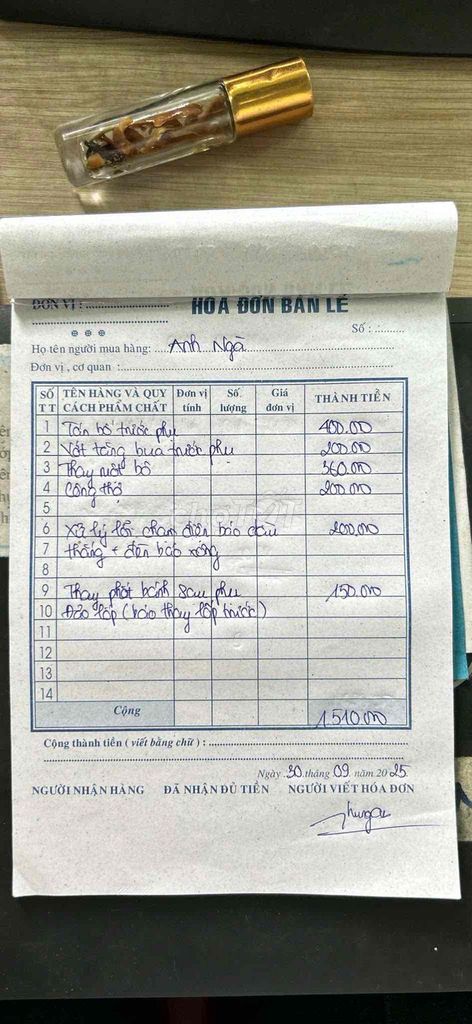 ĐƠN VỊ :
HÓA ĐƠN BÁN LẺ
Số : .:
Họ tên người mua hàng: Anh Ngà
Đơn vị , cơ quan :
SỐ TT TÊN HÀNG VÀ QUY CÁCH PHẨM CHẤT Đơn vị tính Số lượng Giá đơn vị THÀNH TIỀN
1 bố trước phụ 400.000
2 Vớt tăng bua trước phụ 200.000
3 Thay một bộ 360.000
4 Công thợ 200.000
5
6 Xử lý lỗi chạm điện báo cầu 200.000
7 thắng + đèn báo xăng
8
9 Thay phớt bánh sau phụ 150.000
10 Đảo lốp (báo thay lốp trước)
11
12
13
14
Cộng 1.510.000
Cộng thành tiền ( viết bằng chữ ) :
Ngày 30 tháng 09 năm 2025
NGƯỜI NHẬN HÀNG ĐÃ NHẬN ĐỦ TIỀN NGƯỜI VIẾT HÓA ĐƠN